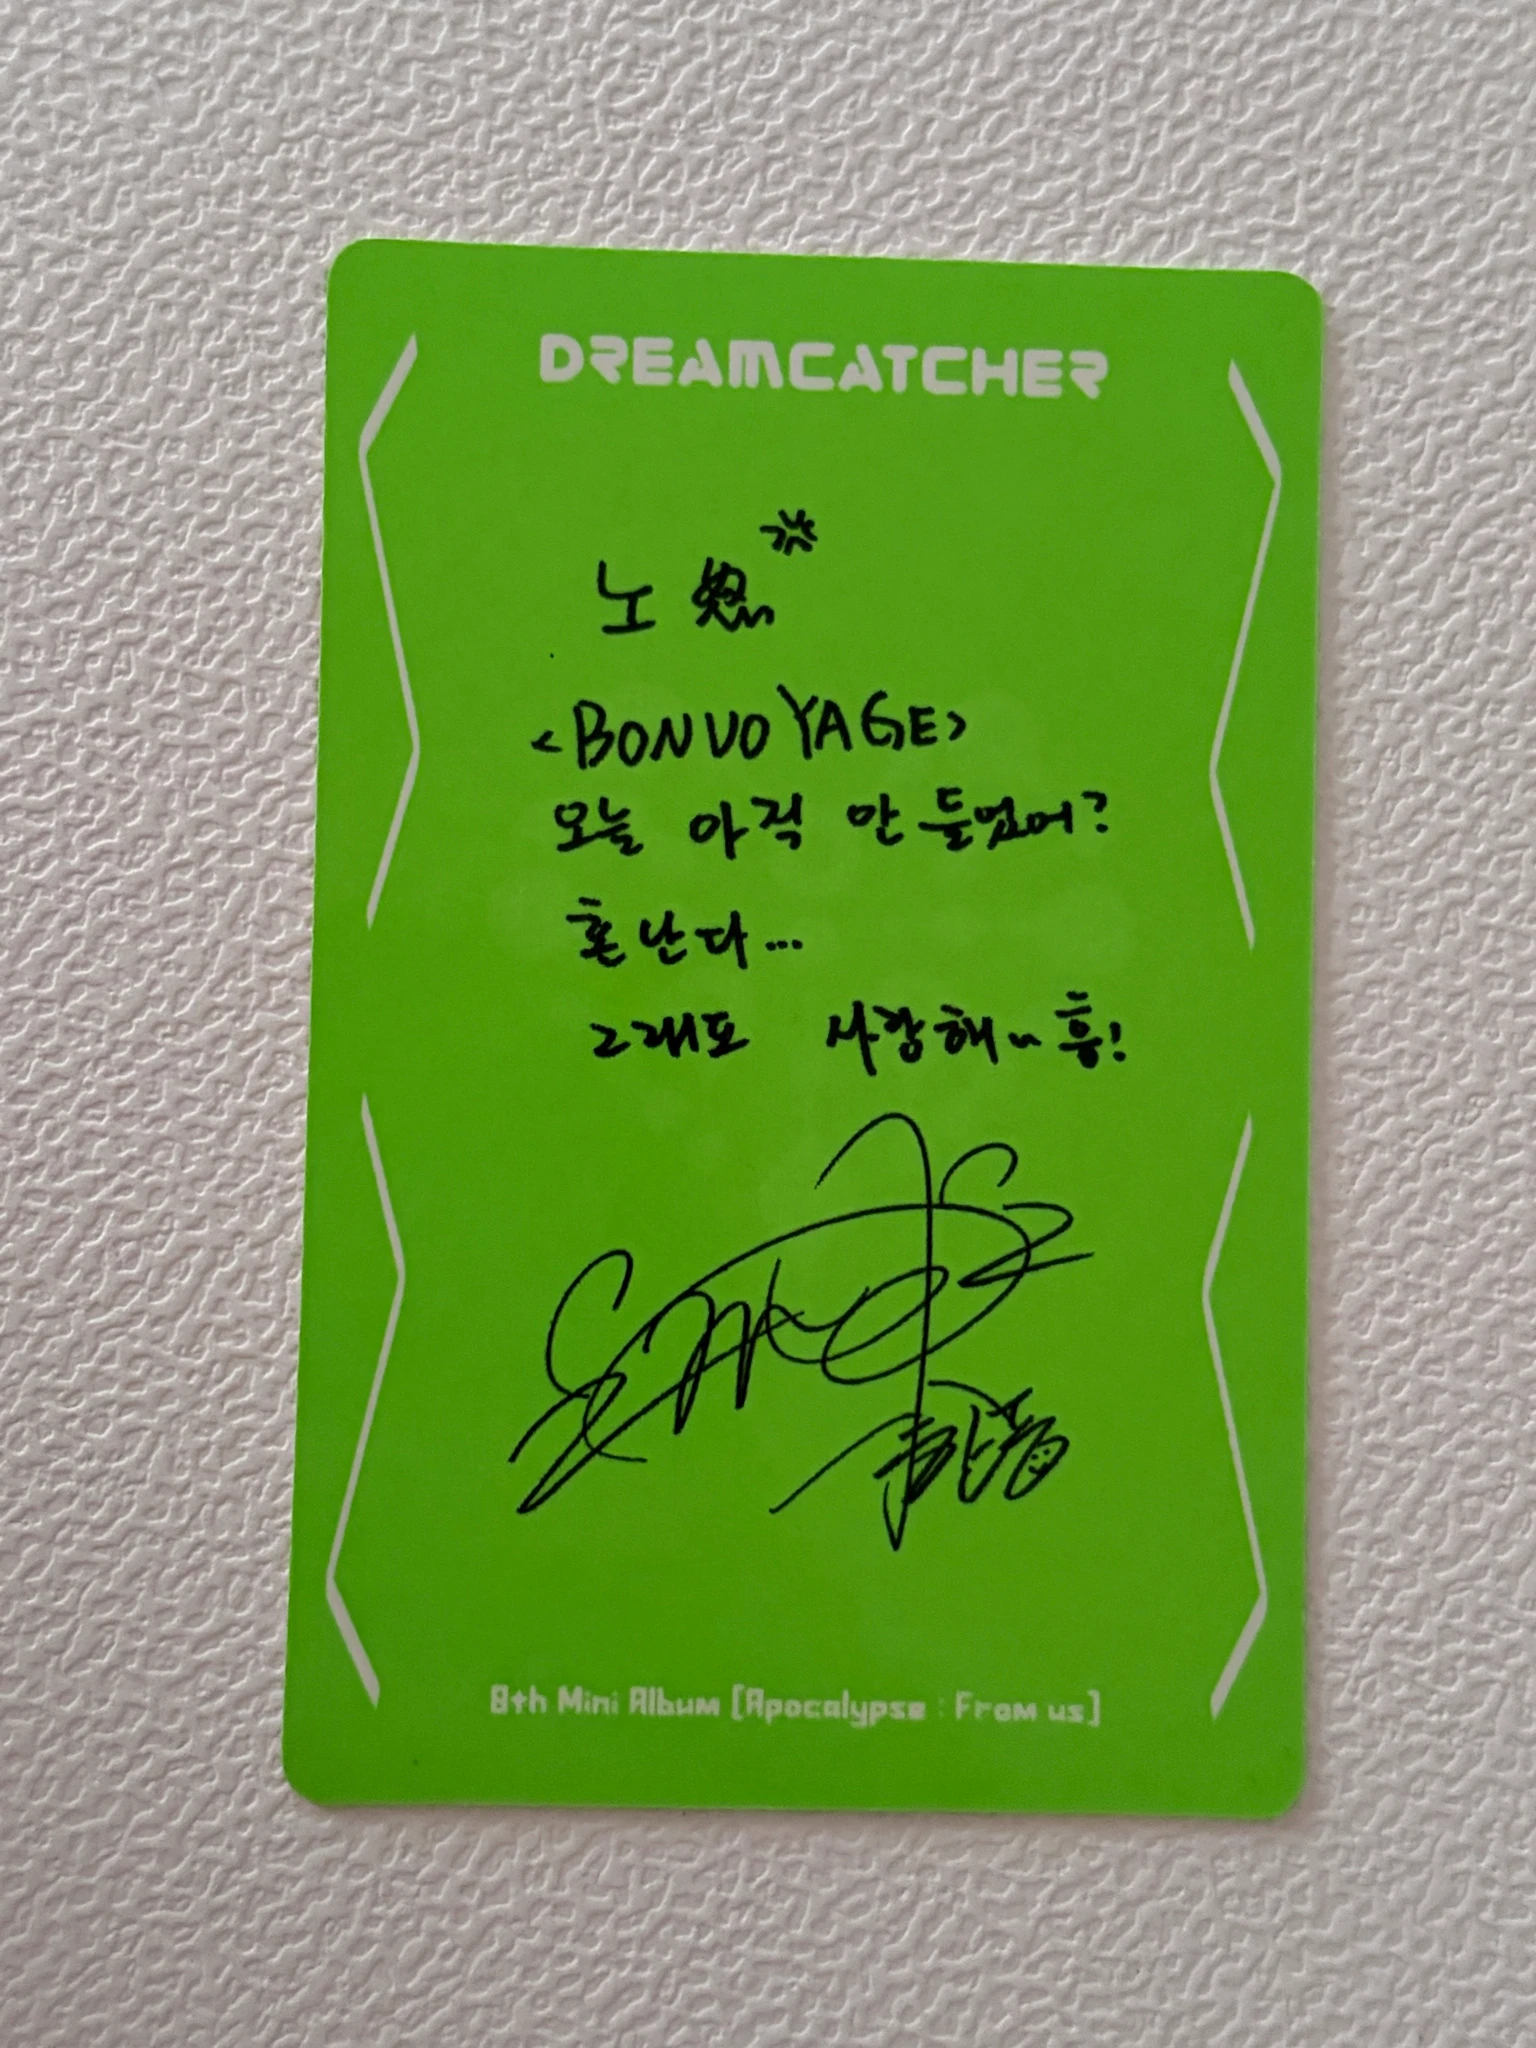 DREAMCATCHER
노
<BONVOYAGE>
오늘 아직 안 들었어?
혼난다...
그래도 사랑해 흥!
8th Mini Album [Apocalypse : From us]